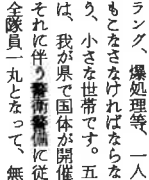 ラング、爆処理等、一人
もこなさなければならな
う、小さな世帯です。五
は、我が県で国体が開催
それに伴う警衛警備に従
全隊員一丸となって、無